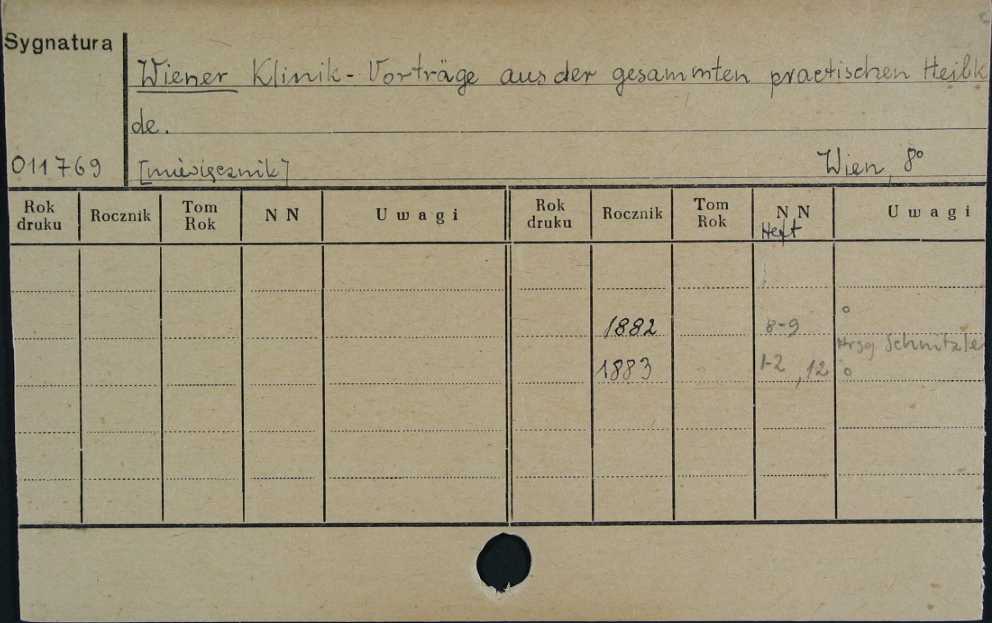 Sygnatura
Wiener Klinik - Vorträge aus der gesammten practischen Heilk
de.
011769 [miesięcznik] Wien, 8°
Rok druku Rocznik Tom Rok N N Uwagi Rok druku Rocznik Tom Rok N N Uwagi
Heft
1882 8-9 °
Hrsg Schnitzle
1883 1-2, 12 °